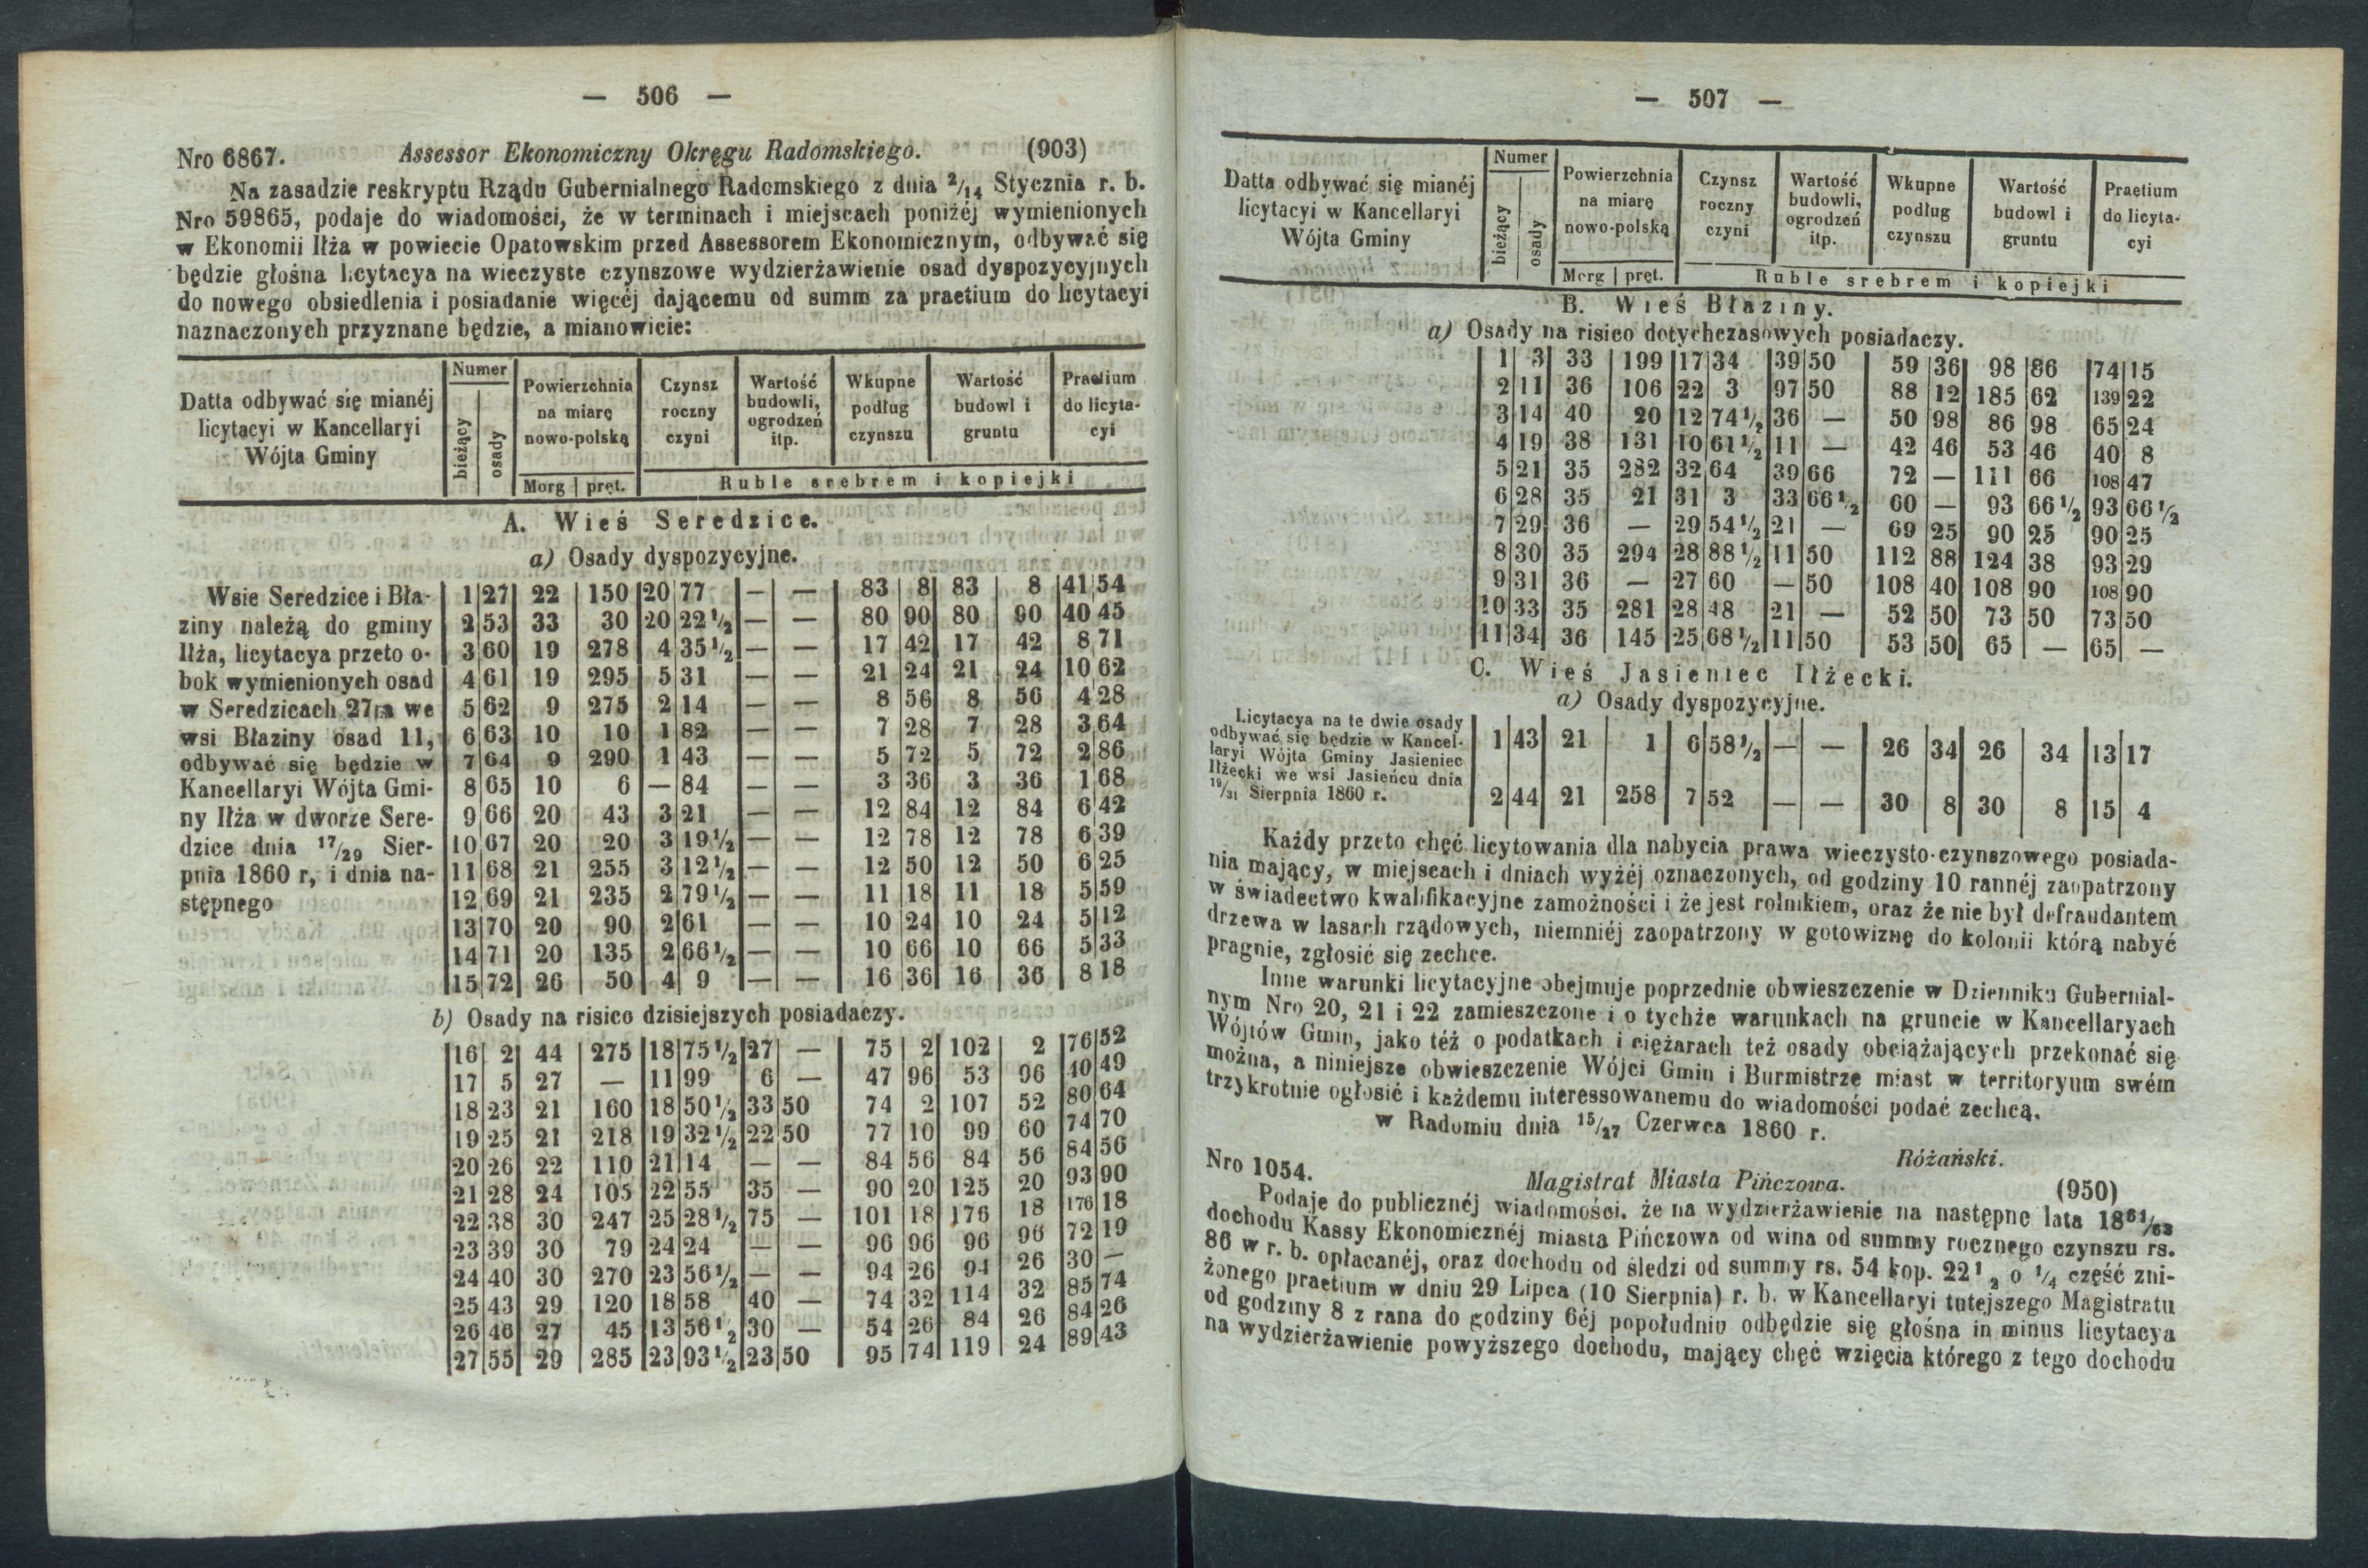 — 506 —
Nro 6867. Assessor Ekonomiczny Okręgu Radomskiego. (903)
Na zasadzie reskryptu Rządu Gubernialnego Radomskiego z dnia 2/14 Stycznia r. b.
Nro 59865, podaje do wiadomości, że w terminach i miejscach poniżéj wymienionych
w Ekonomii Iłża w powiecie Opatowskim przed Assessorem Ekonomicznym, odbywać się
będzie głośna licytacya na wieczyste czynszowe wydzierżawienie osad dyspozycyjnych
do nowego obsiedlenia i posiadanie więcéj dającemu od summ za praetium do licytacyi
naznaczonych przyznane będzie, a mianowicie:
Datta odbywać się mianéj licytacyi w Kancellaryi Wójta Gminy | Numer bieżący | osady | Powierzchnia na miarę nowo-polską Morg | pręt. | Czynsz roczny czyni | Wartość budowli, ogrodzeń itp. | Wkupne podług czynszu | Wartość budowl i gruntu | Praetium do licytacyi
Ruble srebrem i kopiejki
A. Wieś Seredzice.
a) Osady dyspozycyjne.
Wsie Seredzice i Bła- 1 27 22 150 20 77 — — 83 8 83 8 41 54
ziny należą do gminy 2 53 33 30 20 22½ — — 80 90 80 90 40 45
Iłża, licytacya przeto o- 3 60 19 278 4 35½ — — 17 42 17 42 8 71
bok wymienionych osad 4 61 19 295 5 31 — — 21 24 21 24 10 62
w Seredzicach 27m we 5 62 9 275 2 14 — — 8 56 8 56 4 28
wsi Błaziny osad 11, 6 63 10 10 1 82 — — 7 28 7 28 3 64
odbywać się będzie w 7 64 9 290 1 43 — — 5 72 5 72 2 86
Kancellaryi Wójta Gmi- 8 65 10 6 — 84 — — 3 36 3 36 1 68
ny Iłża w dworze Sere- 9 66 20 43 3 21 — — 12 84 12 84 6 42
dzice dnia 17/29 Sier- 10 67 20 20 3 19½ — — 12 78 12 78 6 39
pnia 1860 r, i dnia na- 11 68 21 255 3 12½ — — 12 50 12 50 6 25
stępnego 12 69 21 235 2 79½ — — 11 18 11 18 5 59
13 70 20 90 2 61 — — 10 24 10 24 5 12
14 71 20 135 2 66½ — — 10 66 10 66 5 33
15 72 26 50 4 9 — — 16 36 16 36 8 18
b) Osady na risico dzisiejszych posiadaczy.
16 2 44 275 18 75½ 27 — 75 2 102 2 76 52
17 5 27 — 11 99 6 — 47 96 53 96 40 49
18 23 21 160 18 50½ 33 50 74 2 107 52 80 64
19 25 21 218 19 32½ 22 50 77 10 99 60 74 70
20 26 22 110 21 14 — — 84 56 84 56 84 56
21 28 24 105 22 55 35 — 90 20 125 20 93 90
22 38 30 247 25 28½ 75 — 101 18 176 18 176 18
23 39 30 79 24 24 — — 96 96 96 96 72 19
24 40 30 270 23 56½ — — 94 26 94 26 30 —
25 43 29 120 18 58 40 — 74 32 114 32 85 74
26 46 27 45 13 56½ 30 — 54 26 84 26 84 26
27 55 29 285 23 93½ 23 50 95 74 119 24 89 43
— 507 —
Datta odbywać się mianéj licytacyi w Kancellaryi Wójta Gminy | Numer bieżący | osady | Powierzchnia na miarę nowo-polską Morg | pręt. | Czynsz roczny czyni | Wartość budowli, ogrodzeń itp. | Wkupne podług czynszu | Wartość budowl i gruntu | Praetium do licyta-cyi
Ruble srebrem i kopiejki
B. Wieś Błaziny.
a) Osady na risico dotychczasowych posiadaczy.
1 3 33 199 17 34 39 50 59 36 98 86 74 15
2 11 36 106 22 3 97 50 88 12 185 62 139 22
3 14 40 20 12 74½ 36 — 50 98 86 98 65 24
4 19 38 131 10 61½ 11 — 42 46 53 46 40 8
5 21 35 282 32 64 39 66 72 — 111 66 108 47
6 28 35 21 31 3 33 66½ 60 — 93 66½ 93 66½
7 29 36 — 29 54½ 21 — 69 25 90 25 90 25
8 30 35 294 28 88½ 11 50 112 88 124 38 93 29
9 31 36 — 27 60 — 50 108 40 108 90 108 90
10 33 35 281 28 48 21 — 52 50 73 50 73 50
11 34 36 145 25 68½ 11 50 53 50 65 — 65 —
C. Więś Jasieniec Iłżecki.
a) Osady dyspozycyjne.
Licytacya na te dwie osady
odbywać się będzie w Kancel-
laryi Wójta Gminy Jasieniec
Iłżecki we wsi Jasieńcu dnia
19/31 Sierpnia 1860 r.
1 43 21 1 6 58½ — — 26 34 26 34 13 17
2 44 21 258 7 52 — — 30 8 30 8 15 4
Każdy przeto chęć licytowania dla nabycia prawa wieczysto-czynszowego posiada-
nia mający, w miejscach i dniach wyżéj oznaczonych, od godziny 10 rannéj zaopatrzony
w świadectwo kwalifikacyjne zamożności i że jest rolnikiem, oraz że nie był defraudantem
drzewa w lasach rządowych, niemniéj zaopatrzony w gotowiznę do kolonii którą nabyć
pragnie, zgłosić się zechce.
Inne warunki licytacyjne obejmuje poprzednie obwieszczenie w Dzienniku Gubernial-
nym Nro 20, 21 i 22 zamieszczone i o tychże warunkach na gruncie w Kancellaryach
Wójtów Gmin, jako téż o podatkach i ciężarach też osady obciążających przekonać się
można, a niniejsze obwieszczenie Wójci Gmin i Burmistrze miast w territoryum swém
trzykrotnie ogłosić i każdemu interessowanemu do wiadomości podać zechcą.
w Radomiu dnia 15/27 Czerwca 1860 r.
Różański.
Nro 1054. Magistrat Miasta Pińczowa. (950)
Podaje do publicznéj wiadomości. że na wydzierżawienie na następne lata 1861/63
dochodu Kassy Ekonomicznéj miasta Pińczowa od wina od summy rocznego czynszu rs.
86 w r. b. opłacanéj, oraz dochodu od śledzi od summy rs. 54 kop. 22½ o ¼ część zni-
żonego praetium w dniu 29 Lipca (10 Sierpnia) r. b. w Kancellaryi tutejszego Magistratu
od godziny 8 z rana do godziny 6éj popołudniu odbędzie się głośna in minus licytacya
na wydzierżawienie powyższego dochodu, mający chęć wzięcia którego z tego dochodu